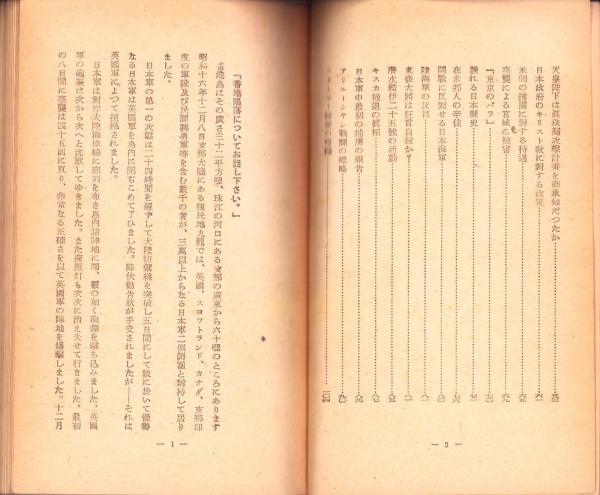 天皇陛下は眞珠灣攻擊計畫を御承知だつたか
日本政府のキリスト敎に對する政策
米側の捕虜に對する待遇
空襲による宮城の被害
「東京のバラ」
誤れる日本歷史
在米邦人の辛住
開戰に反對せる日本海軍
陸海軍の反目
東條大將は狂言自殺か?
潜水艦伊二十五號の活動
キスカ撤退の眞相
日本軍中最初の捕虜の報告
アリューシャン戰鬪の戰略
— 2 —
「香港陷落についてお話し下さい。」
香港島はその廣さ三十二平方哩、珠江の河口にある支那の廣東から六十哩のところにあります
昭和十六年十二月八日支那大陸にある植民地九龍では、英國、スコットランド、カナダ、支那印
度の軍隊及び民間義勇軍等を含む數千の者が、三萬以上からなる日本軍二個師團と對峙して居り
ました。
日本軍の第一の攻擊は二十四時間を經ずして大陸防禦線を突破し五日間にして敵に於いて優勢
なる日本軍は英國軍を島内に閉ぢこめて了ひました。降伏勸告狀が手交されましたが——それは
英國軍によつて拒絶されました。
日本軍は對岸大陸海岸線に砲列を布き島内諸陣地に間、霰の如く砲彈を擊ち込みました。英國
軍の砲臺は次から次へと沈默してゆきました。また探照灯も次次に消え失せて行きました。最初
の八日間に空襲は四十五回に亙り、非常なる正確さを以て英國軍の陣地を爆擊しました。十二月
— 1 —